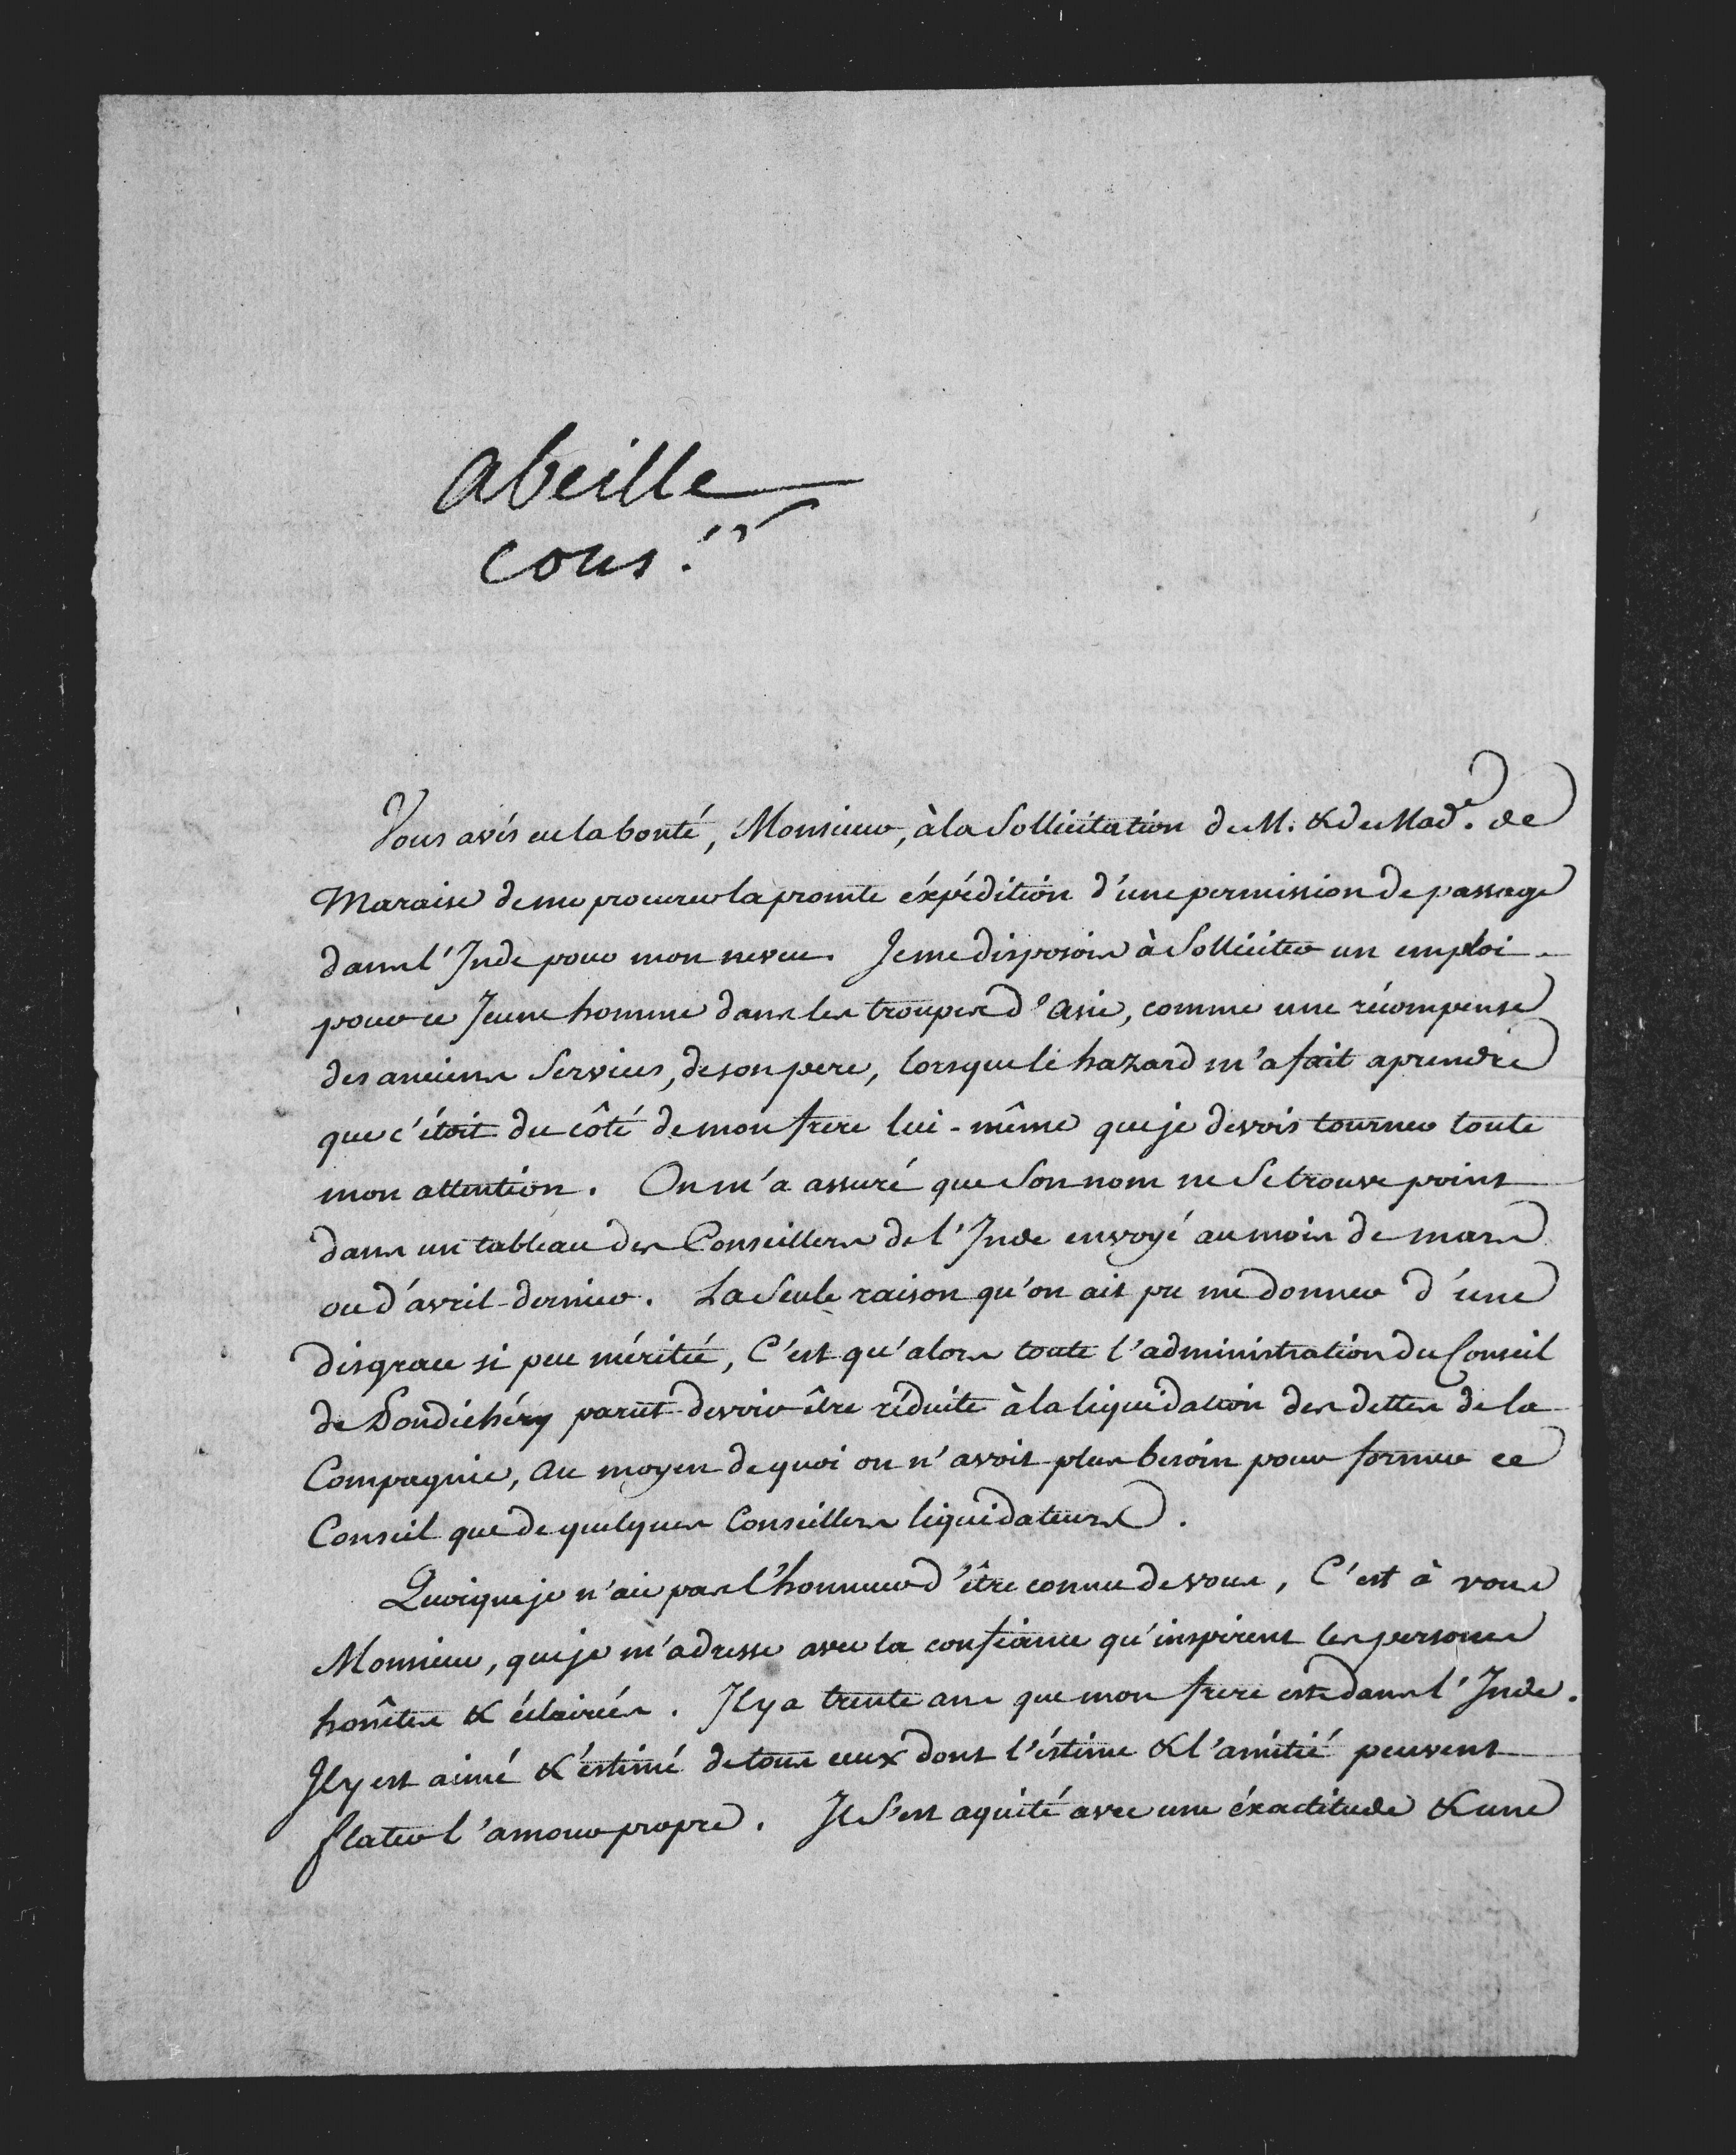 abeille
cons.er
Vous avés eu la bonté, Monsieur, à la Sollicitation de M. & de Mad.e de
Maraise de me procurer la promte éxpédition d'une permission de passage
dans l'Inde pour mon neveu. Je me disposois à Solliciter un emploi
pour ce Jeune homme dans les troupes d'asie, comme une récompense
des anciens Services, de son pere, lorsque le hazard m'a fait aprendre
que c'étoit du côté de mon frere lui-même que je devois tourner toute
mon attention. On m'a assuré que Son nom ne Se trouve point
dans un tableau des Conseillers de l'Inde envoyé au mois de mars
ou d'avril dernier. La Seule raison qu'on ait pu me donner d'une
disgrace si peu méritée, C'est qu'alors toute l'administration du Conseil
de Pondichéry parut devoir être réduite à la liquidation des dettes de la
Compagnie, au moyen de quoi on n'avoit plus besoin pour former ce
Conseil que de quelques Conseillers liquidateurs.
Quoique je n'aie pas l'honneur d'être connu de vous, C'est à vous
Monsieur, que je m'adresse avec la confiance qu'inspirent les persones
honêtes & éclairées. Il y a trente ans que mon frere est dans l'Inde.
Il y est aimé & éstimé de tous ceux dont l'éstime & l'amitié peuvent
flater l'amour propre. Il S'est aquité avec une éxactitude & une